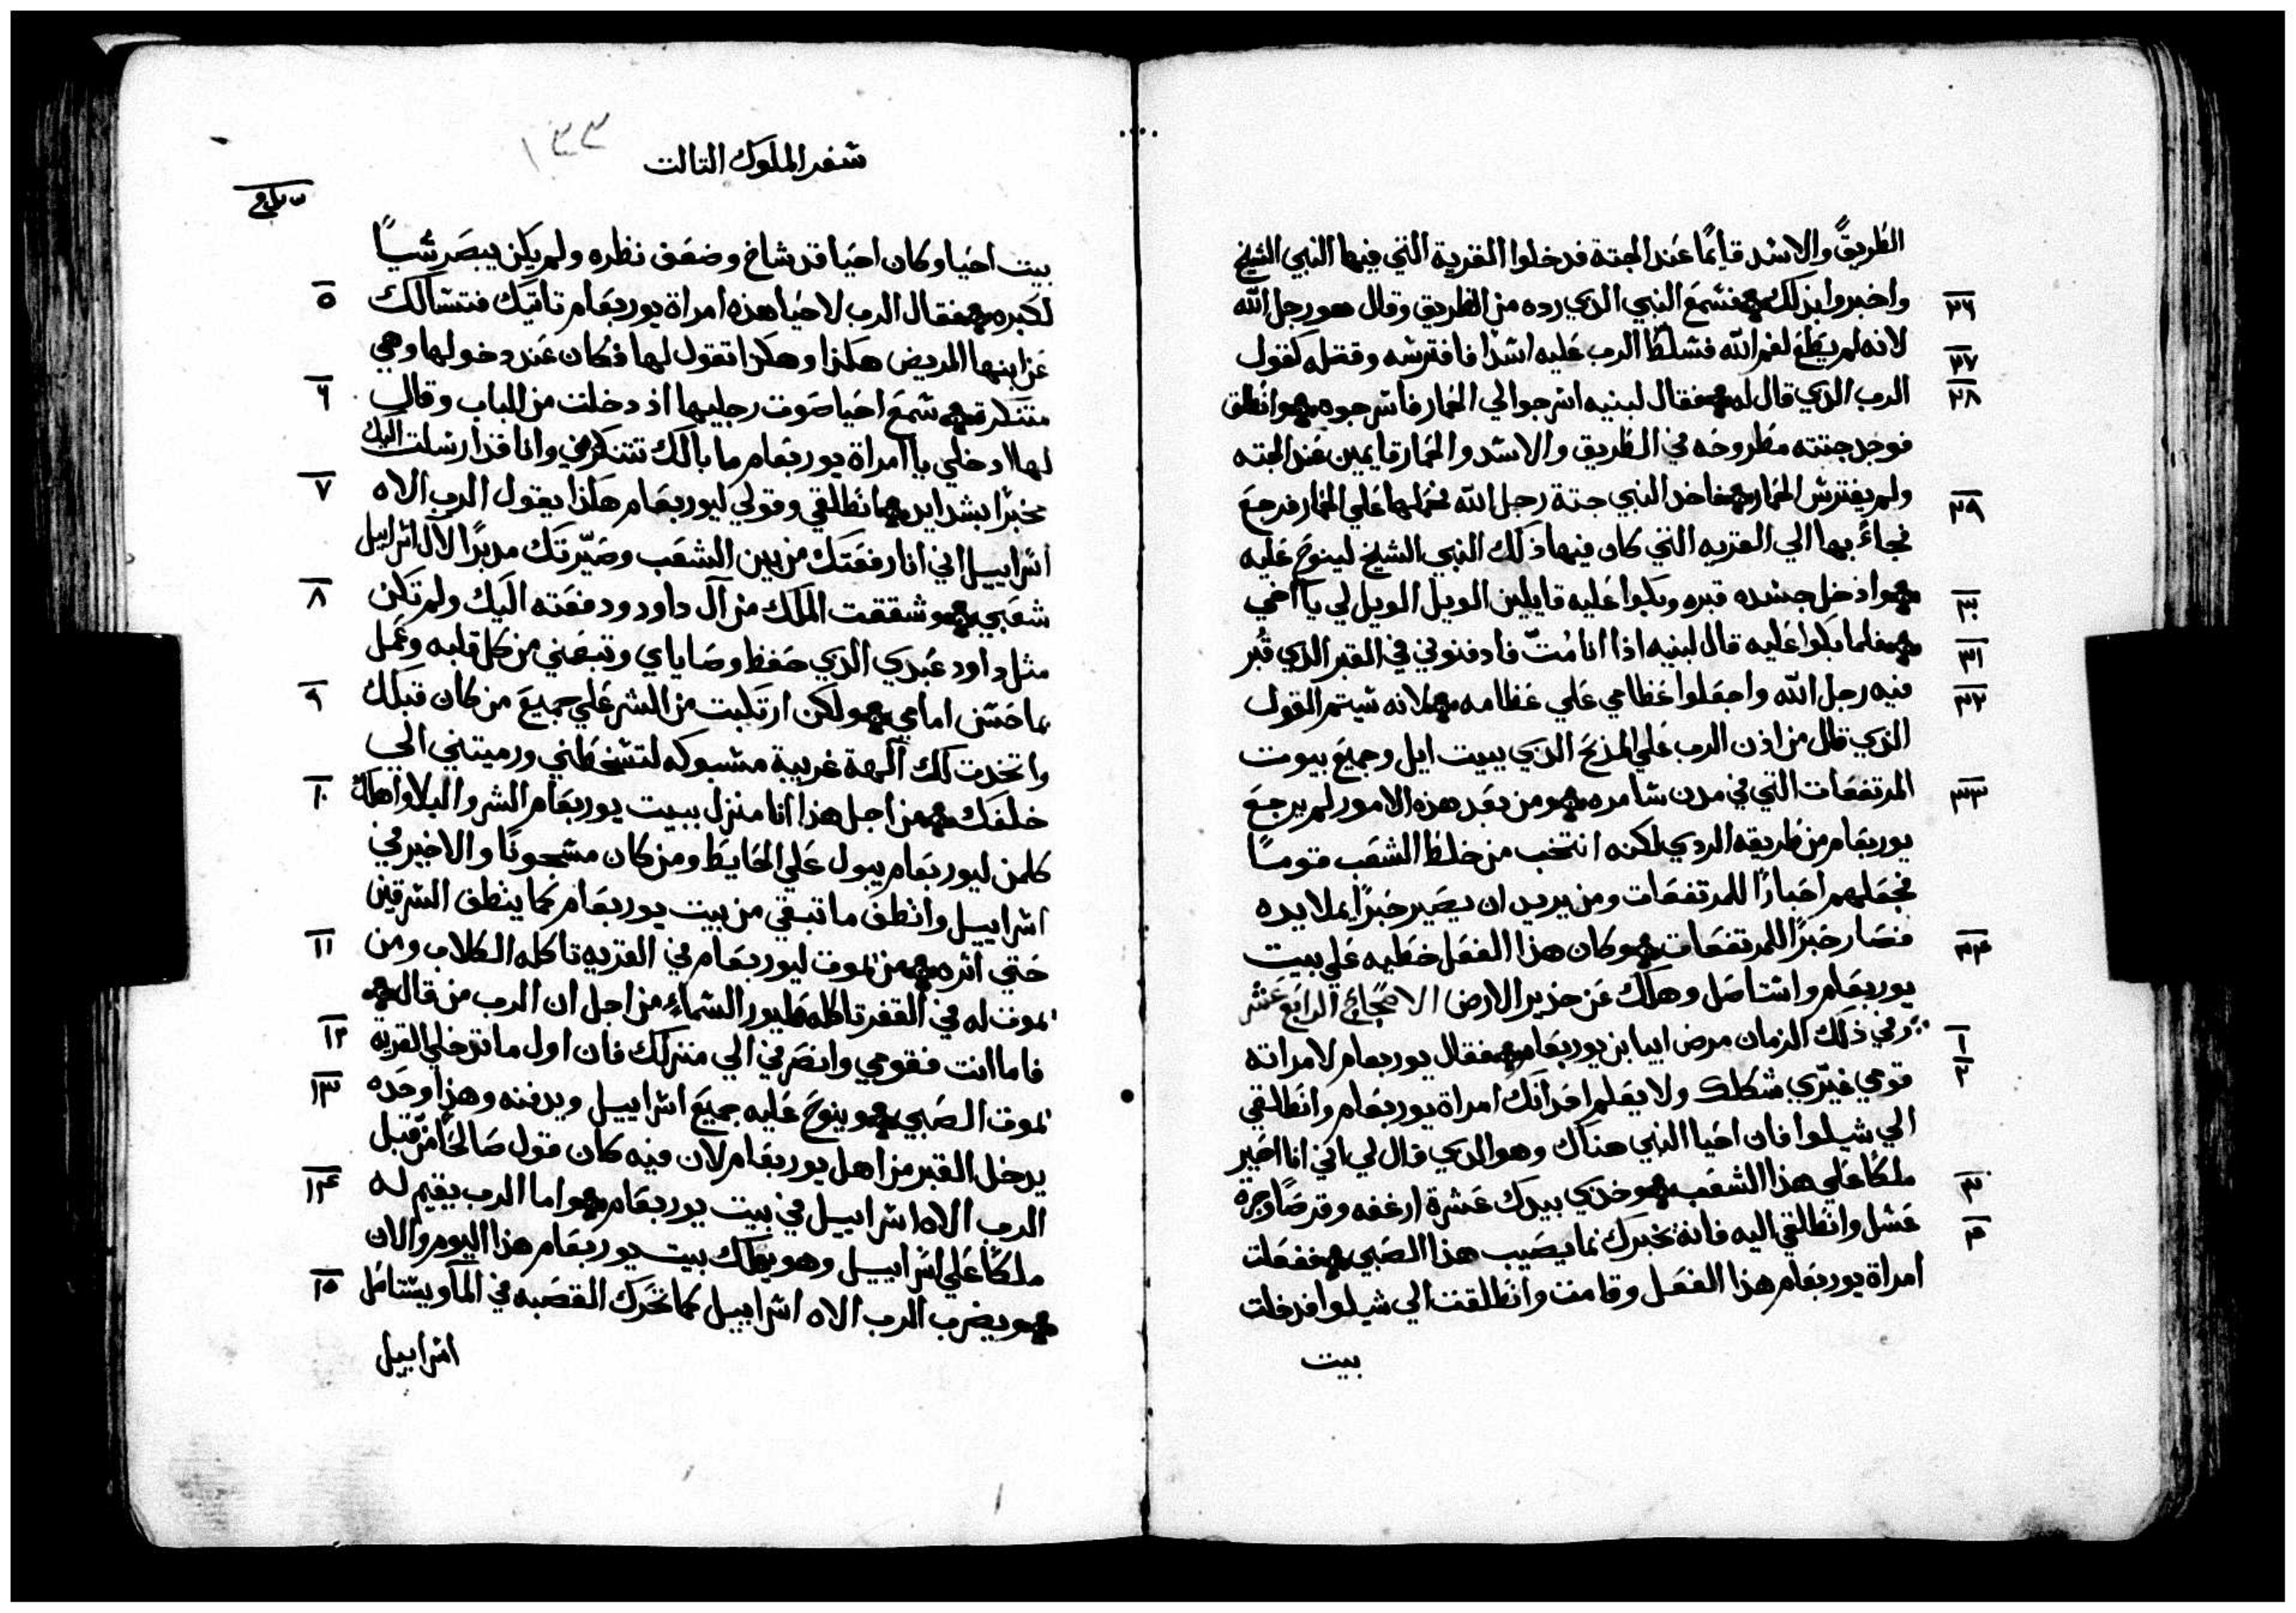 الطريق والاسد قايمًا عند الجتة فدخلوا القرية التي فيها النبي الشيخ
٢٦ واخبروا بذلك فسمع النبي الذي رده من الطريق وقال هو رجل الله
٢٧ لانه لم يطع لفم الله فسلط الرب عليه اسدًا فافترسه وقتله كقول
٢٨ الرب الذي قال له فقال لبنيه اسرجوا لي الحمار فاسرجوه وانطلق
فوجد جتته مطروحه في الطريق والاسد والحمار قايمين عند الجته
٢٩ ولم يفترس الحمار فاخذ النبي جتة رجل الله فحملها علي الحمار فرجع
فجاءَ بها الي القريه التي كان فيها ذلك النبي الشيخ لينوح عليه
٣٠ وادخل جسده قبره وبكوا عليه قايلين الويل الويل لي يا اخي
٣١ فلما بكوا عليه قال لبنيه اذا انا مُتّ فادفنوني في القبر الذي قُبر
٣٢ فيه رجل الله واجعلوا عظامي علي عظامه لانه سيتم القول
الذي قال من اذن الرب علي المذبح الذي ببيت ايل وجميع بيوت
٣٣ المرتفعات التي في مدن شامره ومن بعد هذه الامور لم يرجع
يوربعام من طريقه الردي لكنه انتخب من خلط الشعب قومًا
فجعلهم احبارًا للمرتفعات ومن يريد ان يصير حبرًا يملا يده
٣٤ فصار حبرًا للمرتفعات وكان هذا الفعل خطيه علي بيت
يوربعام واستاصل وهلك عن جذير الارض الاصحاح الرابع عشر
١ وفي ذلك الزمان مرض ابيا بن يوربعام فقال يوربعام لامراته
٢ قومي غيّري شكلك ولا يعلم احد انك امراة يوربعام وانطلقي
الي شيلوا فان احيا النبي هناك وهو الذي قال لي اني انا اصير
٣ ملكًا علي هذا الشعب وخذي بيدك عشرة ارغفه وقرصًا وجرة
٤ عسل وانطلقي اليه فانه يخبرك بما يصيب هذا الصبي ففعلت
امراة يوربعام هذا الفعل وقامت وانطلقت الي شيلوا فدخلت
بيت
سفر الملوك التالت
١٣٣
بيت احيا وكان احيا قد شاخ وضعف نظره ولم يكن يبصر شيًا
٥ لكبره فقال الرب لاحيا هذه امراة يوربعام تاتيك فتسالك
عن ابنها المريض هكذا وهكذا تقول لها فكان عند دخولها وهي
٦ متنكرة سمع احيا صوت رجليها اذ دخلت من الباب وقال
لها ادخلي يا امراة يوربعام ما بالك تتنكرين وانا قد ارسلت اليك
٧ مخبرًا بشدايد انطلقي وقولي ليوربعام هكذا يقول الرب الاه
اسراييل اني انا رفعتك من بين الشعب وصيّرتك مدبرًا لآل اسراييل
٨ شعبي وشققت الملك من آل داود ودفعته اليك ولم تكن
مثل داود عبدي الذي حفظ وصاياي وتبعني من كل قلبه وعمل
٩ بما حسن امامي ولكن ارتكبت من الشر علي جميع من كان قبلك
واتخذت لك آلهة غريبة مسبوكه لتسخطني ورميتني الي
١٠ خلفك من اجل هذا انا منزل ببيت يوربعام الشر والبلا واهلك
كلمن ليوربعام يبول علي الحايط ومن كان مسجونًا والاخير في
اسراييل وانظف ما تبقي من بيت يوربعام كما ينظف السرقين
١١ حتي اثره من يموت ليوربعام في القريه تاكله الكلاب ومن
يموت له في القفر تاكله طيور السماءِ من اجل ان الرب من قال
١٢ فاما انت فقومي وانصرفي الي منزلك فان اول ما تدخلي القريه
١٣ يموت الصبي وينوح عليه جميع اسراييل ويدفنه وهذا وحده
يدخل القبر من اهل يوربعام لان فيه كان قول صالحًا من قبل
١٤ الرب الاه اسراييل في بيت يوربعام واما الرب يقيم له
ملكًا علي اسراييل وهو يهلك بيت يوربعام هذا اليوم والان
١٥ ويضرب الرب الاه اسراييل كما تحرك القصبه في المآ ويستاصل
اسراييل